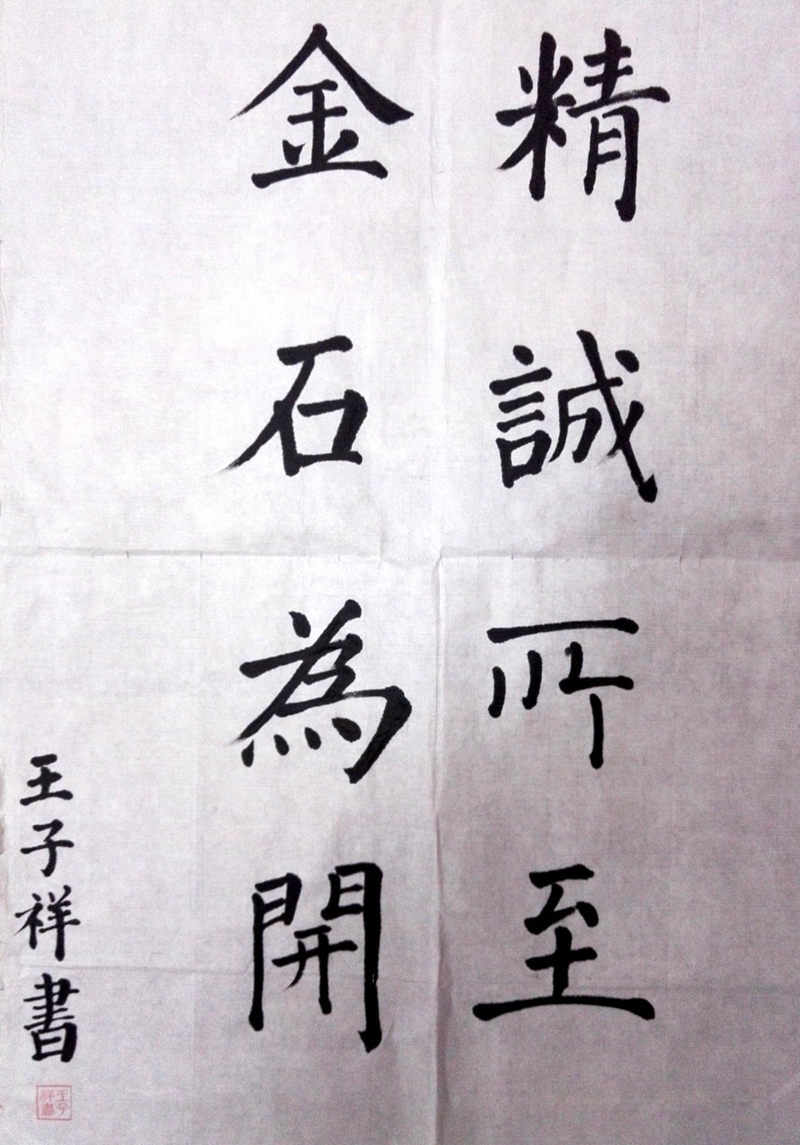 精誠所至
金石為開
王子祥書
王子祥書